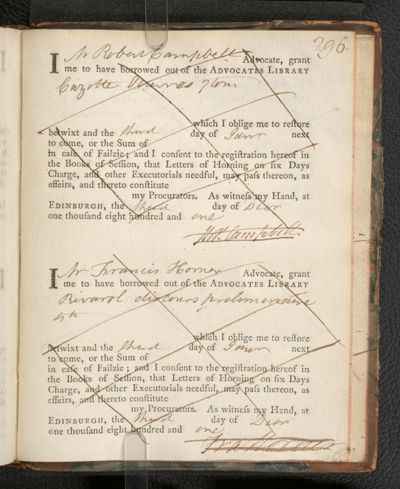 296.
I Mr Robert Campbell Advocate, grant
me to have borrowed out of the ADVOCATES LIBRARY
Cazotte Oeuvres 7 tom
which I oblige me to reſtore
betwixt and the third day of Janr next
to come, or the Sum of
in caſe of Failzie; and I conſent to the regiſtration hereof in
the Books of Seſſion, that Letters of Horning on ſix Days
Charge, and other Executorials needful, may paſs thereon, as
effeirs, and thereto conſtitute
my Procurators. As witneſs my Hand, at
EDINBURGH, the third day of Decr
one thouſand eight hundred and one
Rt. Campbell
I Mr Francis Horner Advocate, grant
me to have borrowed out of the ADVOCATES LIBRARY
Rivarol discours preliminaire
4to
which I oblige me to reſtore
betwixt and the third day of Janr next
to come, or the Sum of
in caſe of Failzie; and I conſent to the regiſtration hereof in
the Books of Seſſion, that Letters of Horning on ſix Days
Charge, and other Executorials needful, may paſs thereon, as
effeirs, and thereto conſtitute
my Procurators. As witneſs my Hand, at
EDINBURGH, the third day of Decr
one thouſand eight hundred and one
Fra Horner